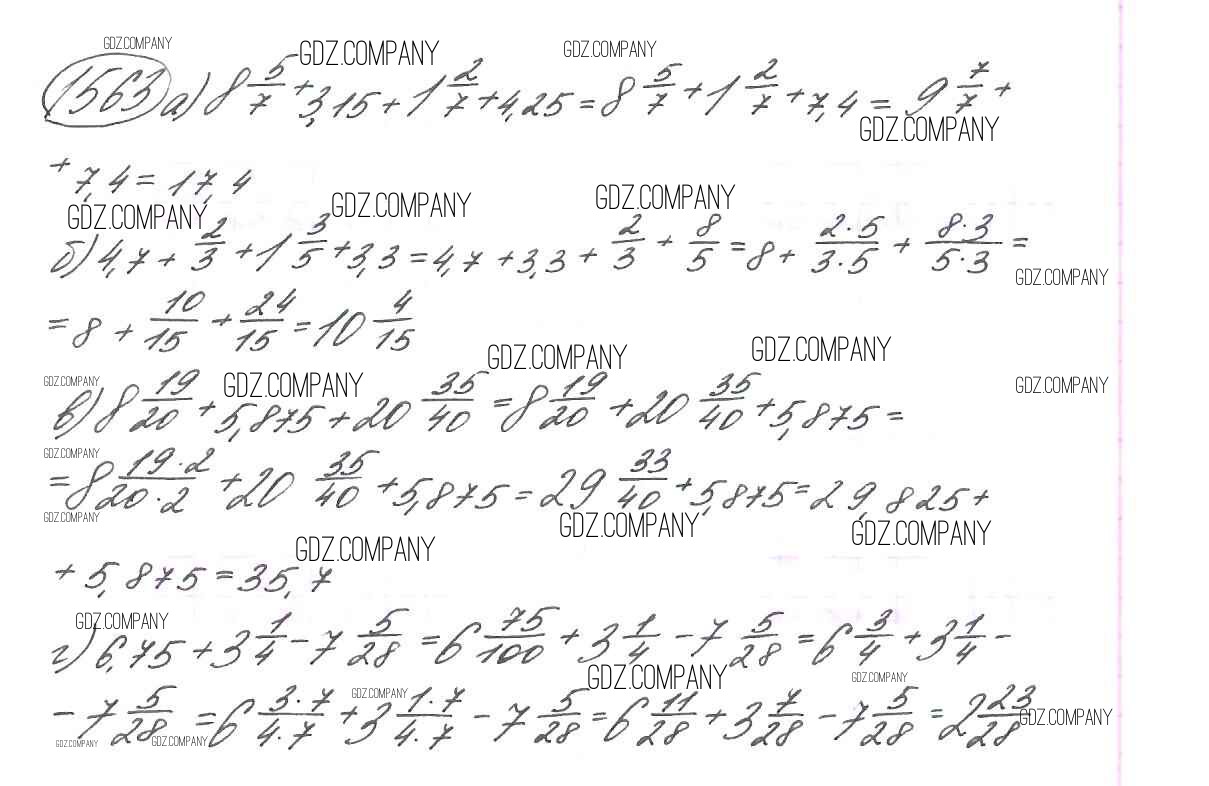 GDZ.COMPANY GDZ.COMPANY GDZ.COMPANY
1563 а) 8 5/7 + 3,15 + 1 2/7 + 4,25 = 8 5/7 + 1 2/7 + 7,4 = 9 7/7 +
GDZ.COMPANY
+ 7,4 = 17,4
GDZ.COMPANY GDZ.COMPANY GDZ.COMPANY
б) 4,7 + 2/3 + 1 3/5 + 3,3 = 4,7 + 3,3 + 2/3 + 8/5 = 8 + 2·5/3·5 + 8·3/5·3 =
GDZ.COMPANY
= 8 + 10/15 + 24/15 = 10 4/15
GDZ.COMPANY GDZ.COMPANY
GDZ.COMPANY GDZ.COMPANY GDZ.COMPANY
в) 8 19/20 + 5,875 + 20 35/40 = 8 19/20 + 20 35/40 + 5,875 =
GDZ.COMPANY
= 8 19·2/20·2 + 20 35/40 + 5,875 = 29 33/40 + 5,875 = 29,825 +
GDZ.COMPANY GDZ.COMPANY GDZ.COMPANY
GDZ.COMPANY
+ 5,875 = 35,7
GDZ.COMPANY
г) 6,75 + 3 1/4 - 7 5/28 = 6 75/100 + 3 1/4 - 7 5/28 = 6 3/4 + 3 1/4 -
GDZ.COMPANY GDZ.COMPANY
GDZ.COMPANY
- 7 5/28 = 6 3·7/4·7 + 3 1·7/4·7 - 7 5/28 = 6 11/28 + 3 7/28 - 7 5/28 = 2 23/28
GDZ.COMPANY GDZ.COMPANY GDZ.COMPANY